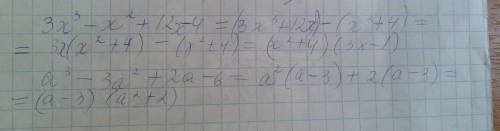 3x³ - x² + 12x - 4 = (3x³ + 12x) - (x² + 4) =
= 3x(x² + 4) - (x² + 4) = (x² + 4)(3x - 1)
a³ - 3a² + 2a - 6 = a²(a - 3) + 2(a - 3) =
= (a - 3)(a² + 2)